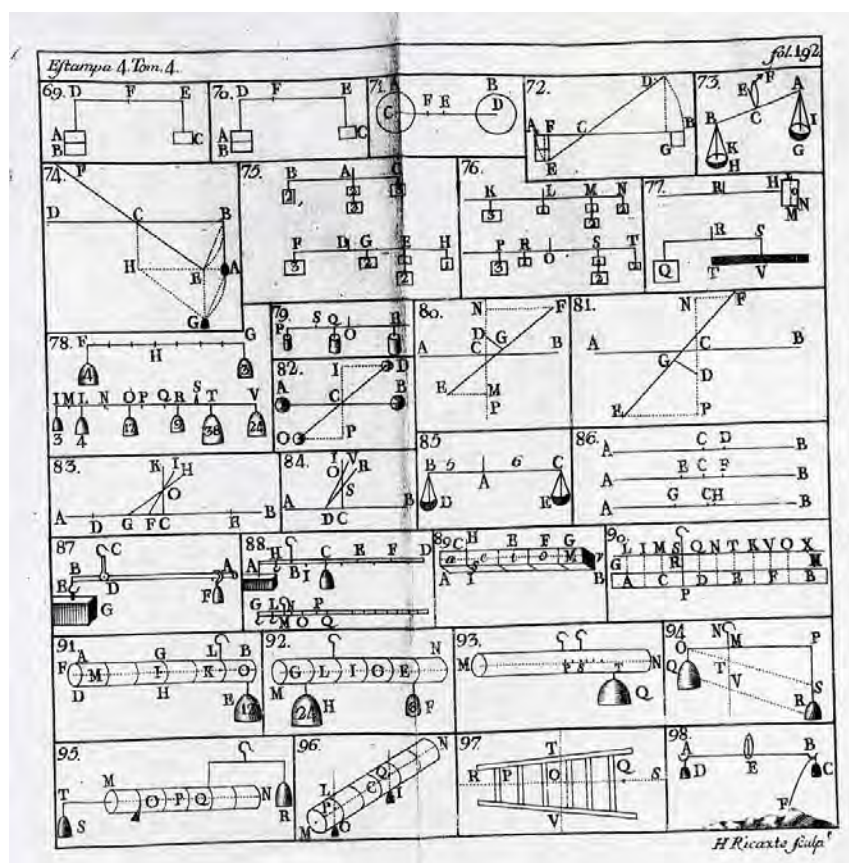 Estampa 4. Tom. 4. fol. 192
69. D F E
A C
B
70. D F E
A C
B
71. A B
C F E D
72. D
A F C B
G
E
73. F A
E
B C I
K G
H
74. F
D C B
H E A
G
75. B A C
2 2 3
3
F D G E H
3 2 2 1
2
76. K L M N
3 1 1 2
2
P R O S T
3 1 1 1
2
77. R H
N
M
R S
Q T V
78. F G
H
4 3
I M L N O P Q R S T V
3 4 12 9 38 24
79. P S Q O R
80. N F
D G
A C B
E M
P
81. N F
A C B
G
D
E P
82. I D
A C B
O P
83. K I H
O
A D G F C E B
84. I V R
O
S
A D C B
85. B 5 6 C
A
D E
86. A C D B
A E C F B
A G C H B
87 C
B A
E D F
G
88. H C E F D
A B I
G L N P
M O Q
89 C H E F G
a c e i o M
A I B
90. L I M S Q N T K V O X
G R M
A C D E F B
P
91 A G L B
F M I K O
D H
E 12
92. N
G L I O E
M
24 H 8 F
93. M P S T N
Q
94 N M P
O
Q T S
V
R
95. M
T O P Q N
S R
96. N
L Q
P C I
M O
97. T
R P O Q S
V
98. A B
D E C
F
H Ricarte sculp.t